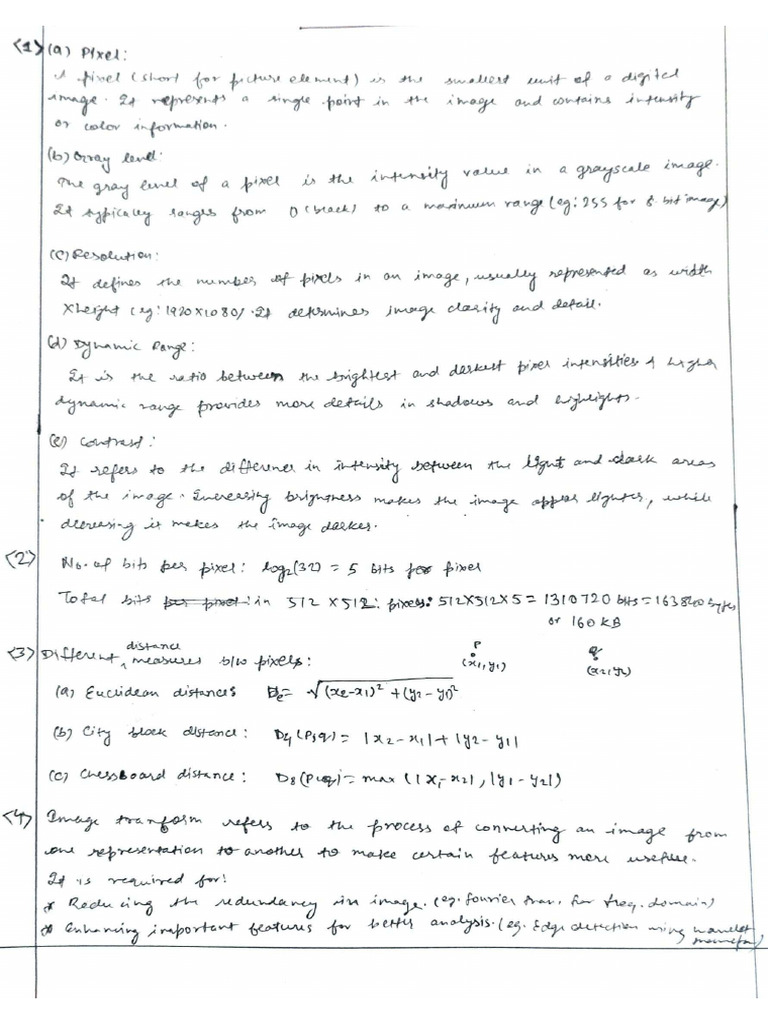 <1> (a) Pixel:
A pixel (short for picture element) is the smallest unit of a digital
image. It represents a single point in the image and contains intensity
or color information.
(b) Gray level:
The gray level of a pixel is the intensity value in a grayscale image.
It typically ranges from 0 (black) to a maximum range (eg: 255 for 8 bit image)
(c) Resolution:
It defines the number of pixels in an image, usually represented as width
X height (eg: 1920 X 1080). It determines image clarity and detail.
(d) Dynamic Range:
It is the ratio between the brightest and darkest pixel intensities A higher
dynamic range provides more details in shadows and highlights.
(e) Contrast:
It refers to the difference in intensity between the light and dark areas
of the image. Increasing brightness makes the image appear lighter, while
decreasing it makes the image darker.
<2> No. of bits per pixel: log₂(32) = 5 bits per pixel
Total bits in 512 X 512: pixels: 512X512X5 = 1310720 bits = 163840 bytes
or 160 KB
<3> Different distance measures b/w pixels: P (x1, y1) q (x2, y2)
(a) Euclidean distances De = √(x2-x1)² + (y2-y1)²
(b) City block distance: D4 (P,q) = |x2 - x1| + |y2 - y1|
(c) Chessboard distance: D8 (P,q) = max (|x1 - x2|, |y1 - y2|)
<4> Image transform refers to the process of converting an image from
one representation to another to make certain features more useful.
It is required for:
* Reducing the redundancy in image. (eg. Fourier tran. for freq. domain)
* Enhancing important features for better analysis. (eg. Edge detection using wavelet